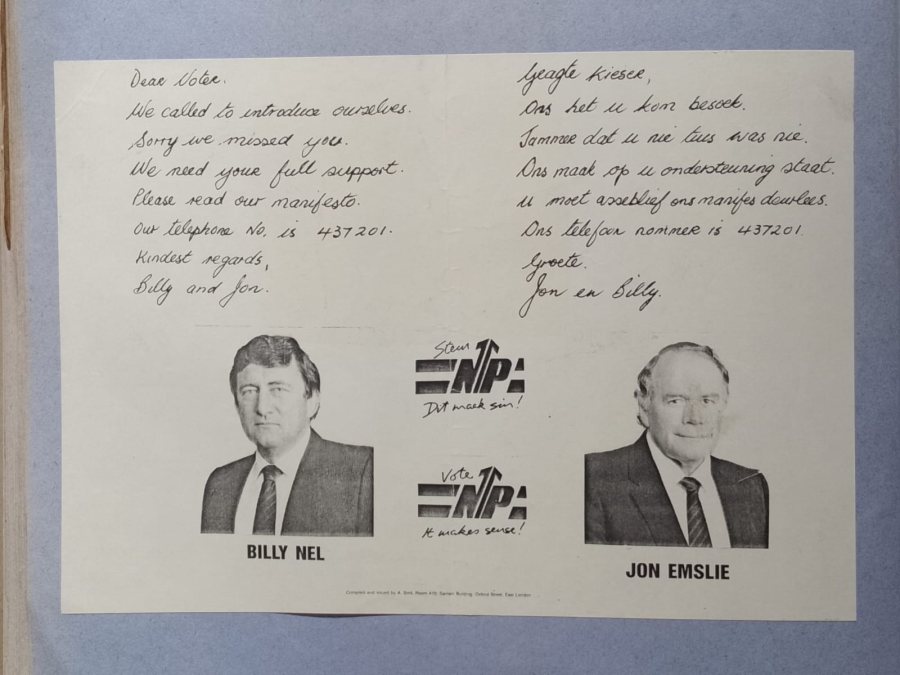 Dear Voter.
We called to introduce ourselves.
Sorry we missed you.
We need your full support.
Please read our manifesto.
Our telephone No. is 437201.
Kindest regards,
Billy and Jon.
Geagte Kieser,
Ons het u kom besoek.
Jammer dat u nie tuis was nie.
Ons maak op u ondersteuning staat.
U moet asseblief ons manifes deurlees.
Ons telefoon nommer is 437201.
Groete.
Jon en Billy.
Stem
NP
Dit maak sin!
Vote
NP
It makes sense!
BILLY NEL
JON EMSLIE
Compiled and issued by A. Room 419, Building, Oxford Street, East London